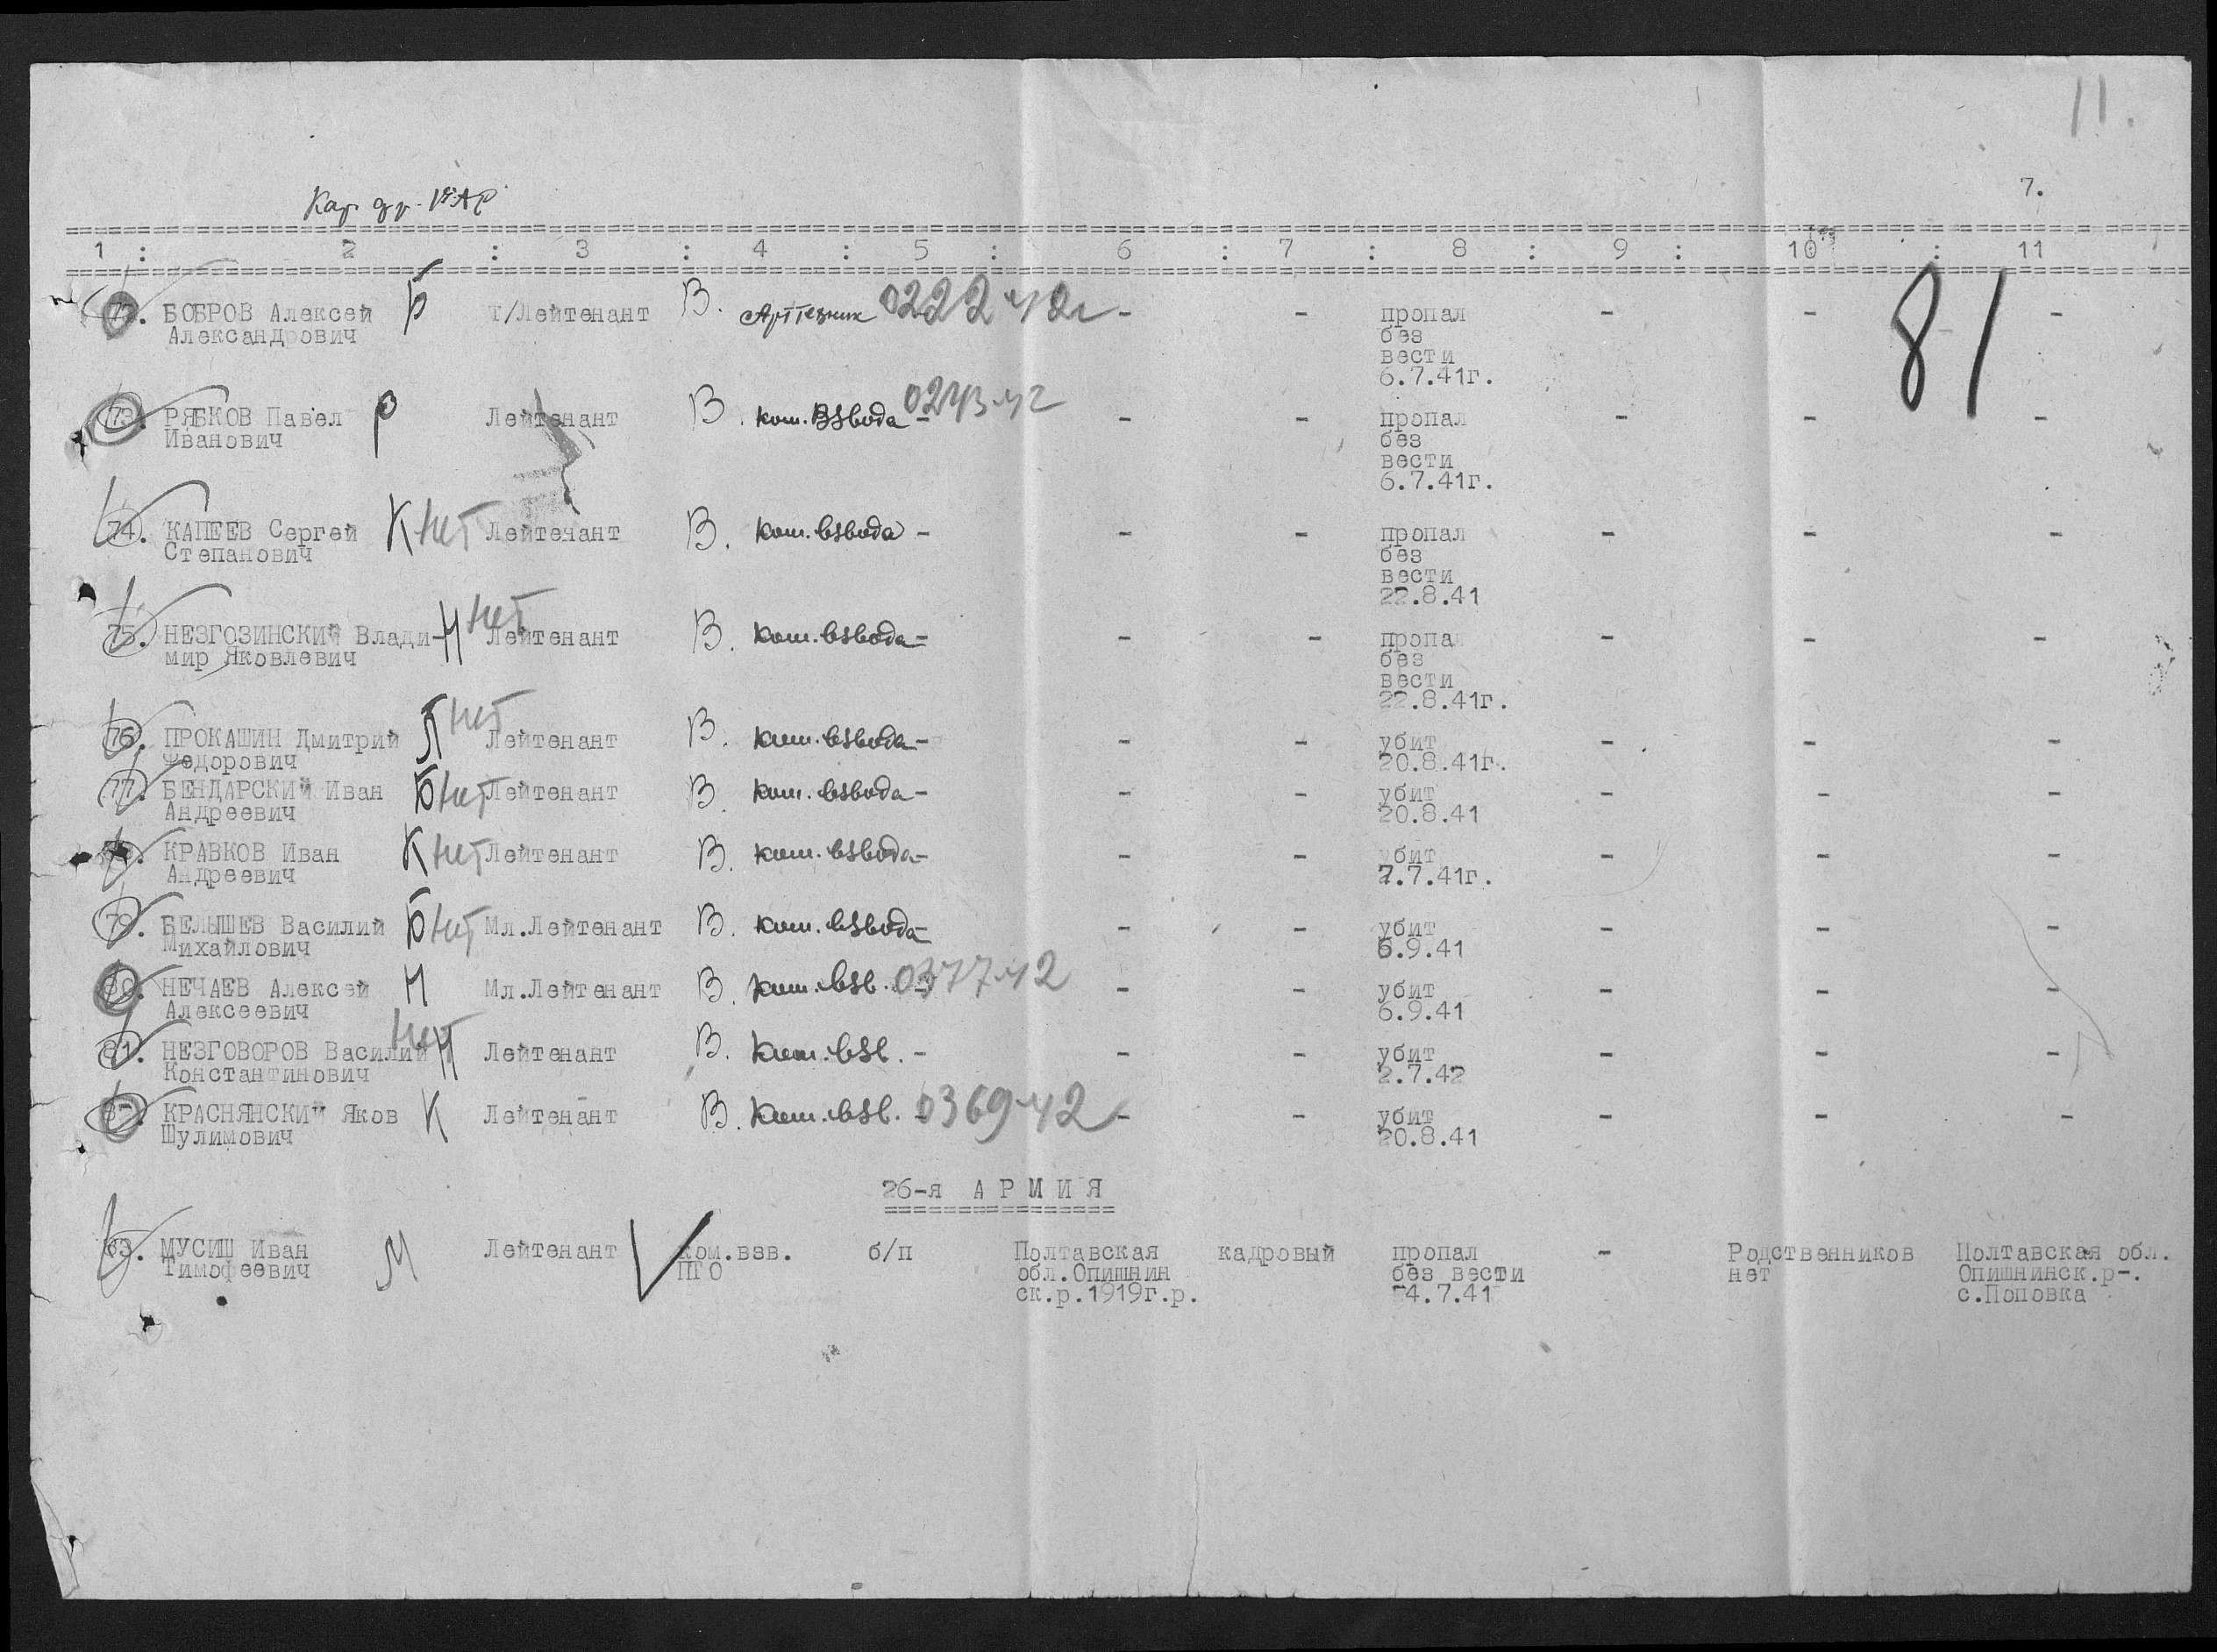 11.
7.
Кар. др.
1 : 2 : 3 : 4 : 5 : 6 : 7 : 8 : 9 : 10 : 11
72. БОБРОВ Алексей Б Т/Лейтенант В. Арттехник 0222 42г - - пропал - - -
Александрович без
вести
6.7.41г.
81
73. РЯБКОВ Павел Р Лейтенант В. ком. взвода - 0243-42 - - пропал - - -
Иванович без
вести
6.7.41г.
74. КАПЕЕВ Сергей К нет Лейтенант В. ком. взвода - - - пропал - - -
Степанович без
вести
22.8.41
75. НЕЗГОЗИНСКИЙ Влади- Н нет Лейтенант В. ком. взвода - - - пропал - - -
мир Яковлевич без
вести
22.8.41г.
76. ПРОКАШИН Дмитрий П нет Лейтенант В. ком. взвода - - - убит - - -
Федорович 20.8.41г.
77. БЕНДАРСКИЙ Иван Б нет Лейтенант В. ком. взвода - - - убит - - -
Андреевич 20.8.41
78. КРАВКОВ Иван К нет Лейтенант В. ком. взвода - - - убит - - -
Андреевич 7.7.41г.
79. БЕЛЫШЕВ Василий Б нет Мл.Лейтенант В. ком. взвода - - - убит - - -
Михайлович 6.9.41
80. НЕЧАЕВ Алексей Н Мл.Лейтенант В. ком. взв. - 0377-42 - - убит - - -
Алексеевич 6.9.41
81. НЕЗГОВОРОВ Василий нет Н Лейтенант В. ком. взв. - - - убит - - -
Константинович 2.7.42
82. КРАСНЯНСКИЙ Яков К Лейтенант В. ком. взв. - 0369-42 - - убит - - -
Шулимович 20.8.41
26-я АРМИЯ
83. МУСИШ Иван М Лейтенант Ком.взв. б/п Полтавская кадровый пропал - Родственников Полтавская обл.
Тимофеевич ПТО обл.Опишнин без вести нет Опишнинск.р-.
ск.р.1919г.р. 4.7.41 с.Поповка